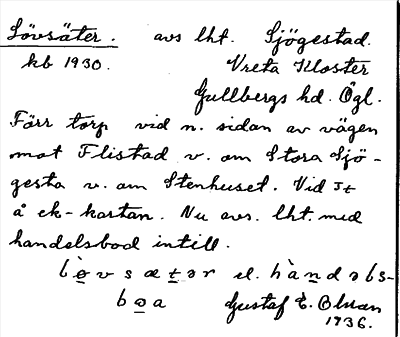 Lövsäter. avs lht. Sjögestad.
kb 1930. Vreta Kloster
Gullbergs hd. Ögl.
Förr torp vid n. sidan av vägen
mot Flistad v. om Stora Sjö-
gesta v. om Stenhuset. Vid Jt
å ek-kartan. Nu avs. lht. med
handelsbod intill.
el.
Gustaf E.
1936.